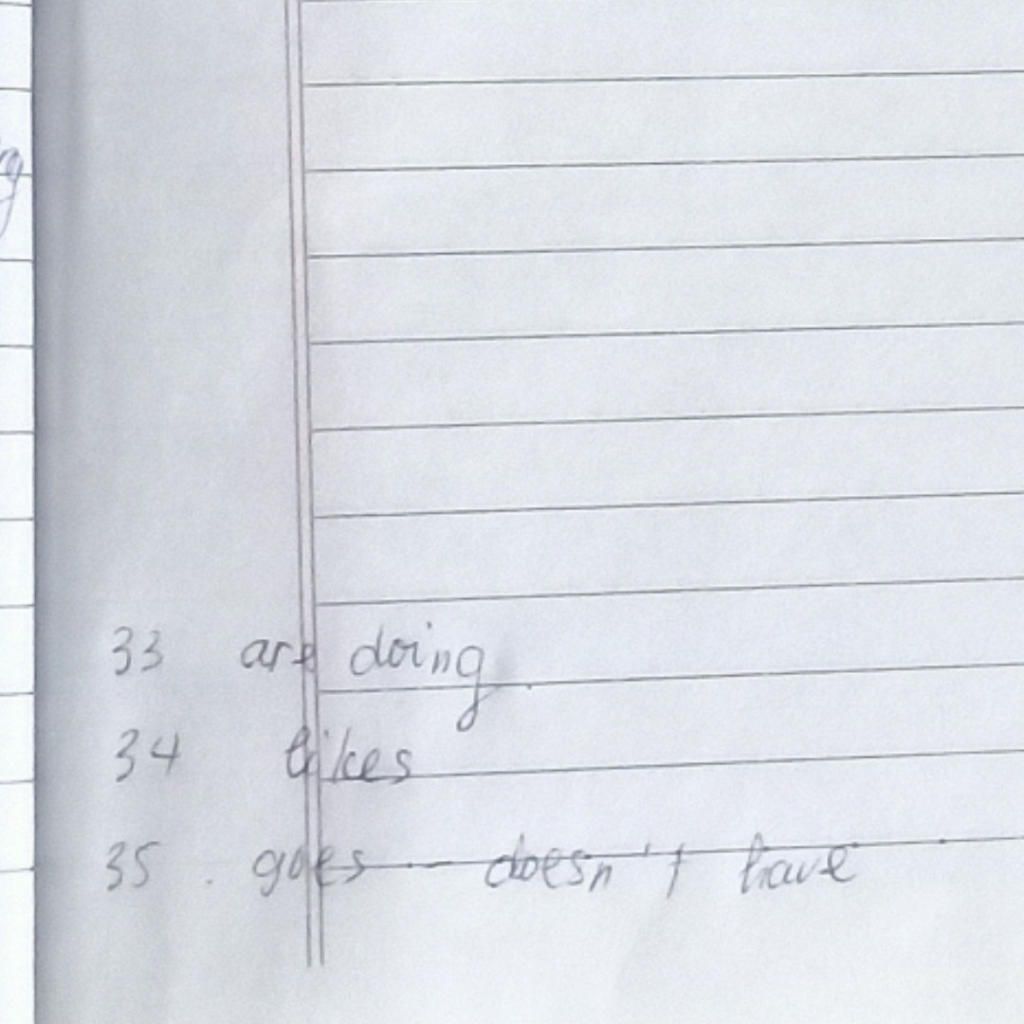 33 are doing
34 likes
35 . goes - doesn't have